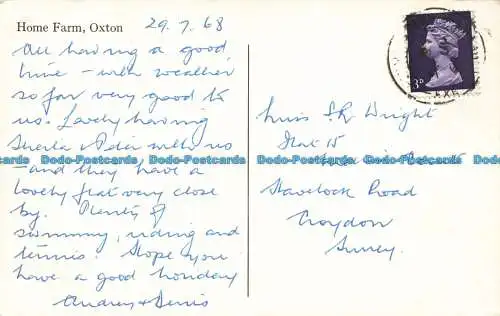 Home Farm, Oxton
29.7.68
All having a good
time - with weather
so far very good to
us. Lovely having
Sheila & with us
- and they have a
lovely flat very close
by. Plenty of
swimming, riding and
tennis. Hope you
have a good holiday
Audrey + Denis
3D
Miss Wright
Flat 15
Road
Croydon
Surrey.
Dodo-Postcards Dodo-Postcards Dodo-Postcards Dodo-Postcards Dodo-Postcards